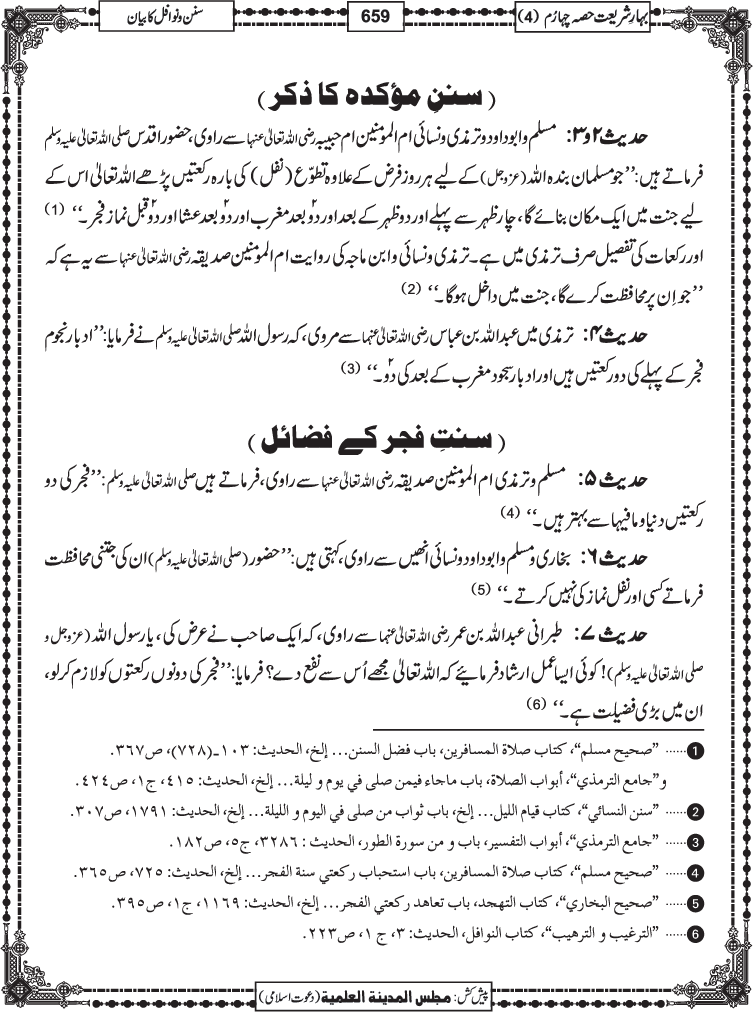 بہارِشریعت حصہ چہارم (4)
659
سنن و نوافل کا بیان
( سنن مؤکدہ کا ذکر )
حدیث ۲و۳: مسلم و ابوداود و ترمذی و نسائی ام المومنین ام حبیبہ رضی اللہ تعالیٰ عنہا سے راوی، حضور اقدس صلی اللہ تعالیٰ علیہ وسلم
فرماتے ہیں: ’’جو مسلمان بندہ اللہ (عزوجل) کے لیے ہر روز فرض کے علاوہ تطوّع (نفل) کی بارہ رکعتیں پڑھے اللہ تعالیٰ اس کے
لیے جنت میں ایک مکان بنائے گا، چار ظہر سے پہلے اور دو ظہر کے بعد اور دو۲ بعد مغرب اور دو۲ بعد عشا اور دو۲ قبل نماز فجر۔‘‘ (1)
اور رکعات کی تفصیل صرف ترمذی میں ہے۔ ترمذی و نسائی و ابن ماجہ کی روایت ام المومنین صدیقہ رضی اللہ تعالیٰ عنہا سے یہ ہے کہ
’’جو اِن پر محافظت کرے گا، جنت میں داخل ہوگا۔‘‘ (2)
حدیث ۴: ترمذی میں عبداللہ بن عباس رضی اللہ تعالیٰ عنہما سے مروی، کہ رسول اللہ صلی اللہ تعالیٰ علیہ وسلم نے فرمایا: ’’ادبار نجوم
فجر کے پہلے کی دو رکعتیں ہیں اور ادبار سجود مغرب کے بعد کی دو۲۔‘‘ (3)
( سنتِ فجر کے فضائل )
حدیث ۵: مسلم و ترمذی ام المومنین صدیقہ رضی اللہ تعالیٰ عنہا سے راوی، فرماتے ہیں صلی اللہ تعالیٰ علیہ وسلم: ’’فجر کی دو
رکعتیں دنیا و مافیہا سے بہتر ہیں۔‘‘ (4)
حدیث ۶: بخاری و مسلم و ابوداود و نسائی انھیں سے راوی، کہتی ہیں: ’’حضور (صلی اللہ تعالیٰ علیہ وسلم) ان کی جتنی محافظت
فرماتے کسی اور نفل نماز کی نہیں کرتے۔‘‘ (5)
حدیث ۷: طبرانی عبداللہ بن عمر رضی اللہ تعالیٰ عنہما سے راوی، کہ ایک صاحب نے عرض کی، یا رسول اللہ (عزوجل و
صلی اللہ تعالیٰ علیہ وسلم)! کوئی ایسا عمل ارشاد فرمائیے کہ اللہ تعالیٰ مجھے اُس سے نفع دے؟ فرمایا: ’’فجر کی دونوں رکعتوں کو لازم کرلو،
ان میں بڑی فضیلت ہے۔‘‘ (6)
1 ...... ”صحيح مسلم“، كتاب صلاة المسافرين، باب فضل السنن... إلخ، الحديث: ١٠٣ـ(٧٢٨)، ص٣٦٧.
و”جامع الترمذي“، أبواب الصلاة، باب ماجاء فيمن صلى في يوم و ليلة... إلخ، الحديث: ٤١٥، ج١، ص٤٢٤.
2 ...... ”سنن النسائي“، كتاب قيام الليل... إلخ، باب ثواب من صلى في اليوم و الليلة... إلخ، الحديث: ١٧٩١، ص٣٠٧.
3 ...... ”جامع الترمذي“، أبواب التفسير، باب و من سورة الطور، الحديث : ٣٢٨٦، ج٥، ص١٨٢.
4 ...... ”صحيح مسلم“، كتاب صلاة المسافرين، باب استحباب ركعتي سنة الفجر... إلخ، الحديث: ٧٢٥، ص٣٦٥.
5 ...... ”صحيح البخاري“، كتاب التهجد، باب تعاهد ركعتي الفجر... إلخ، الحديث: ١١٦٩، ج١، ص٣٩٥.
6 ...... ”الترغيب و الترهيب“، كتاب النوافل، الحديث: ٣، ج ١، ص٢٢٣.
پیش کش: مجلس المدينة العلمية (دعوت اسلامی)